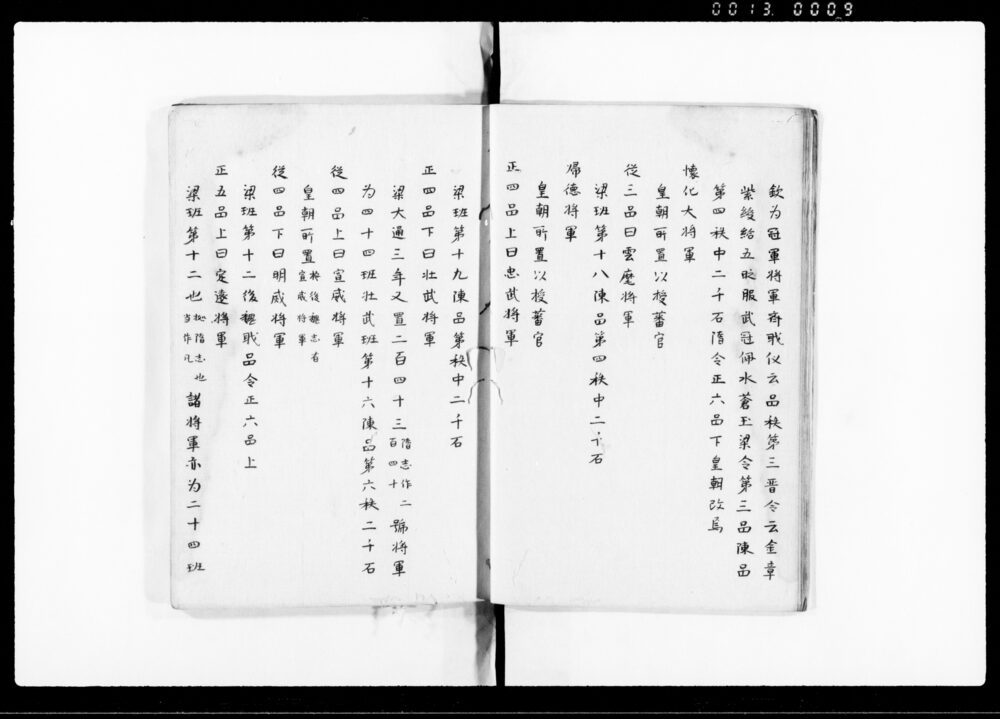 0013 0009
欽为冠軍将軍齊戝仪云品秩第三晋令云金章
紫綬給五时服武冠佩水蒼玉梁令第三品陳品
第四秩中二千石隋令正六品下皇朝改焉
懐化大将軍
皇朝所置以授蕃官
従三品曰雲麾将軍
梁班第十八陳品第四秩中二千石
帰德将軍
皇朝所置以授蕃官
正四品上曰忠武将軍
梁班第十九陳品第秩中二千石
正四品下曰壮武将軍
梁大通三年又置二百四十三隋志作二百四十號将軍
为四十四班壮武班第十六陳品第六秩二千石
従四品上曰宣威将軍
皇朝所置按後魏志有宣威将軍
従四品下曰明威将軍
梁班第十二後魏戝品令正六品上
正五品上曰定遠将軍
梁班第十二也按隋志也当作凡諸将軍亦为二十四班